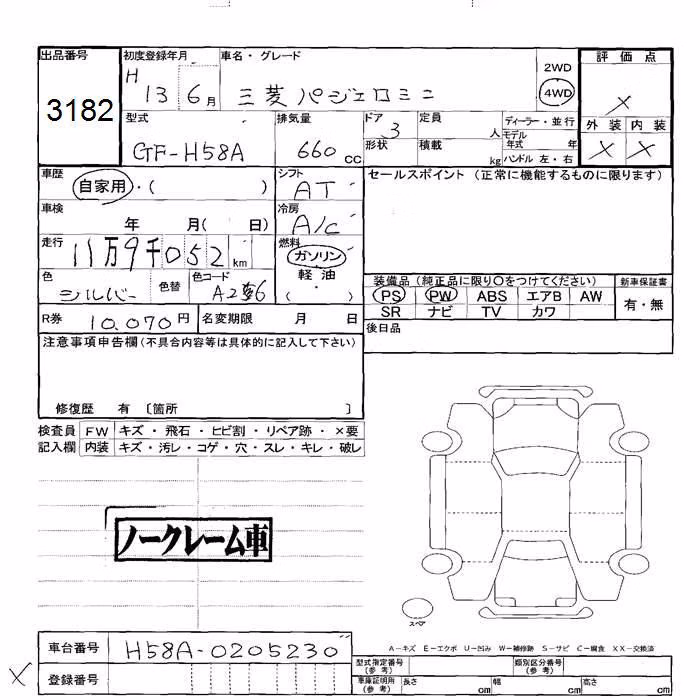 出品番号 初度登録年月 車名・グレード 評価点
3182 H 13 6月 三菱パジェロミニ 2WD 4WD ×
型式 排気量 ドア 定員 ディーラー・並行 外装 内装
GF-H58A 660cc 3 人 モデル年式 年 × ×
形状 積載 kg ハンドル 左・右
車歴 シフト セールスポイント (正常に機能するものに限ります)
自家用・( ) AT
車検 冷房
年 月( 日) A/C
走行 燃料
11万9千052km ガソリン
色 色替 色コード 軽油・
シルバー ( )
装備品 (純正品に限り○をつけてください) 新車保証書
PS PW ABS エアB AW 有・無
SR ナビ TV カワ
R券 10,070円 名変期限 月 日 後日品
注意事項申告欄(不具合内容等は具体的に記入して下さい)
修復歴 有 〔箇所 〕
検査員 FW キズ・飛石・ヒビ割・リペア跡・×要
記入欄 内装 キズ・汚レ・コゲ・穴・スレ・キレ・破レ
ノークレーム車
スペア
A-キズ E-エクボ U-凹み W-補修跡 S-サビ C-腐食 XX-交換済
車台番号 H58A-0205230
型式指定番号(参考) 類別区分番号(参考)
× 登録番号
車庫証明用(参考) 長さ cm 幅 cm 高さ cm